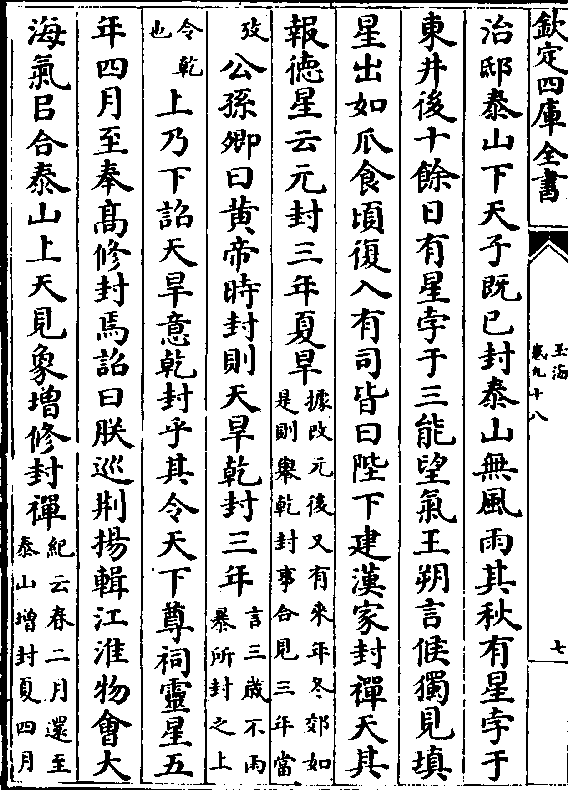 欽定四庫全書
玉海
卷九十八
七
治邸泰山下天子既已封泰山無風雨其秋有星孛于
東井後十餘日有星孛于三能望氣王朔言候獨見填
星出如瓜食頃復入有司皆曰陛下建漢家封禪天其
報德星云元封三年夏旱
據改元後又有来年冬郊如
是則舉乾封事合見三年當
攷
公孫卿曰黄帝時封則天旱乾封三年
言三歳不雨
暴所封之上
令乾
也
上乃下詔天旱意乾封乎其令天下尊祠靈星五
年四月至奉髙修封焉詔曰朕巡荆揚輯江淮物會大
海氣㠯合泰山上天見象増修封禪
紀云春二月還至
泰山増封夏四月